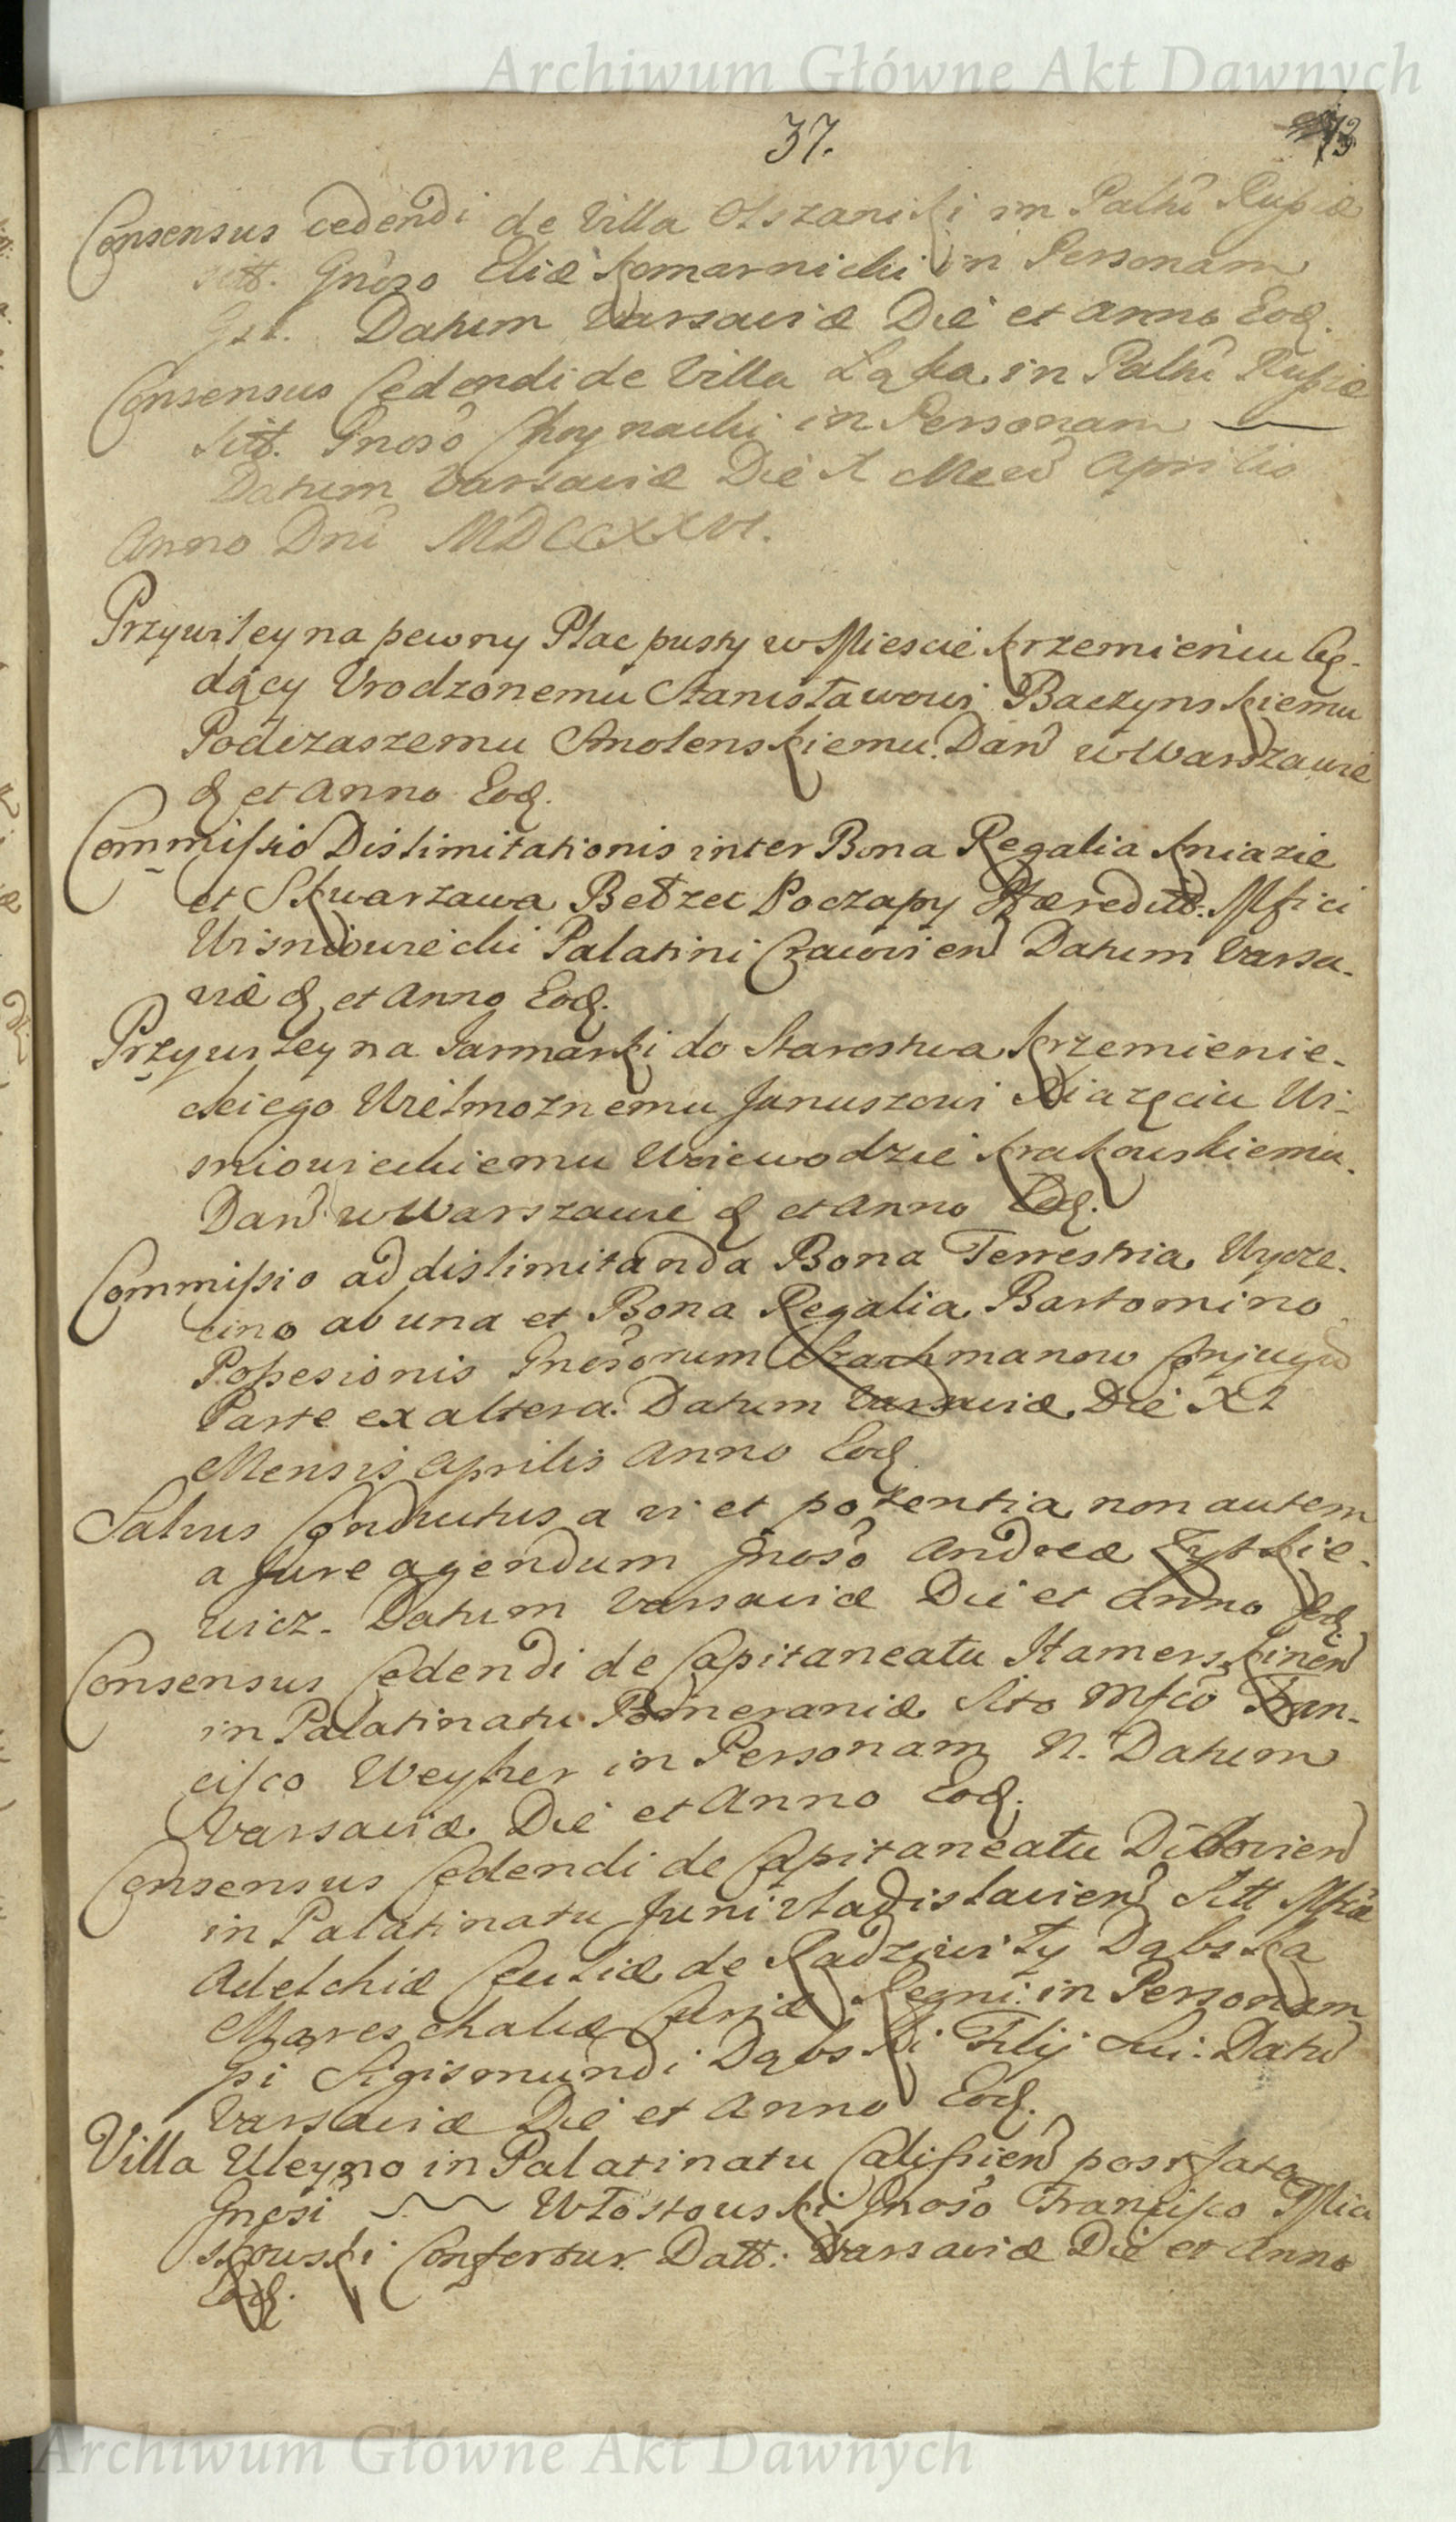 Archiwum Główne Akt Dawnych
37.
73
Consensus cedendi de Villa Olszaniki in Palñu Russiæ
sitt. Gnoso Eliæ Komarnicki in Personam
Datum Varsaviæ Die et Anno Eod.
Consensus Cedendi de Villa Łąka in Palñu Russiæ
sitt. Gnoso Choynacki in Personam —
Datum Varsaviæ Die X Mens Aprilis
Anno Dni MDCCXXVI.
Przywiley na pewny Plac pusty w Miescie Krzemieńcu bę-
dący Vrodzonemu Stanisławowi Baczynskiemu
Podczaszemu Smolenskiemu. Dan w Warszawie
d et Anno Eod.
Commissio Dislimitationis inter Bona Regalia Kniazie
et Skwarzawa Bełzec Poczapy Hæredit. Mfici
Wisniowiecki Palatini Cracovien Datum Varsa-
viæ d et Anno Eod.
Przywiley na Jarmarki do Starostwa Krzemienie-
ckiego Wielmoznemu Januszowi Xiązęciu Wi-
sniowieckiemu Woiewodzie Krakowskiemu.
Dan w Warszawie d et Anno Eod.
Commissio ad dislimitanda Bona Terrestria Wycze-
cino ab una et Bona Regalia Bartomino
Possesionis Gnosorum Strachmanow Conjugū
Parte ex altera. Datum Varsaviæ Die XI
Mensis Aprilis Anno Eod
Salvus Conductus a vi et potentia non autem
a Jure agendum Gnoso Andreæ Zytkie-
wicz. Datum Varsaviæ Die et Anno Eod.
Consensus Cedendi de Capitaneatu Hamerstinen
in Palatinatu Pomeraniæ Sito Mfco Fran-
cisco Weyher in Personam N. Datum
Varsaviæ Die et Anno Eod.
Consensus Cedendi de Capitaneatu Dibovien
in Palatinatu Junivladislavien Sitt Mficæ
Adelchiæ Ceciliæ de Radziwiły Dąbska
Mareschalcæ Curiæ Regni in Personam
Gsi Sigismundi Dąbski Filij Sui. Datū
Varsaviæ Die et Anno Eod.
Villa Uleyno in Palatinatu Calissien post fata
Gnosi — Włostouski Gnoso Francisco Mia
skouski Confertur. Datt: Varsaviæ Die et Anno
Eod.
Archiwum Główne Akt Dawnych